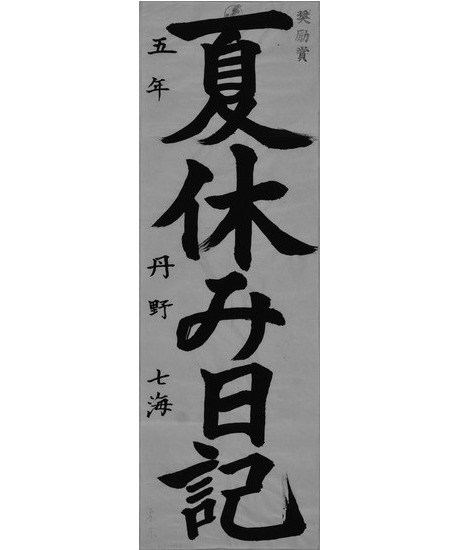 奨励賞
夏休み日記
五年 丹野 七海